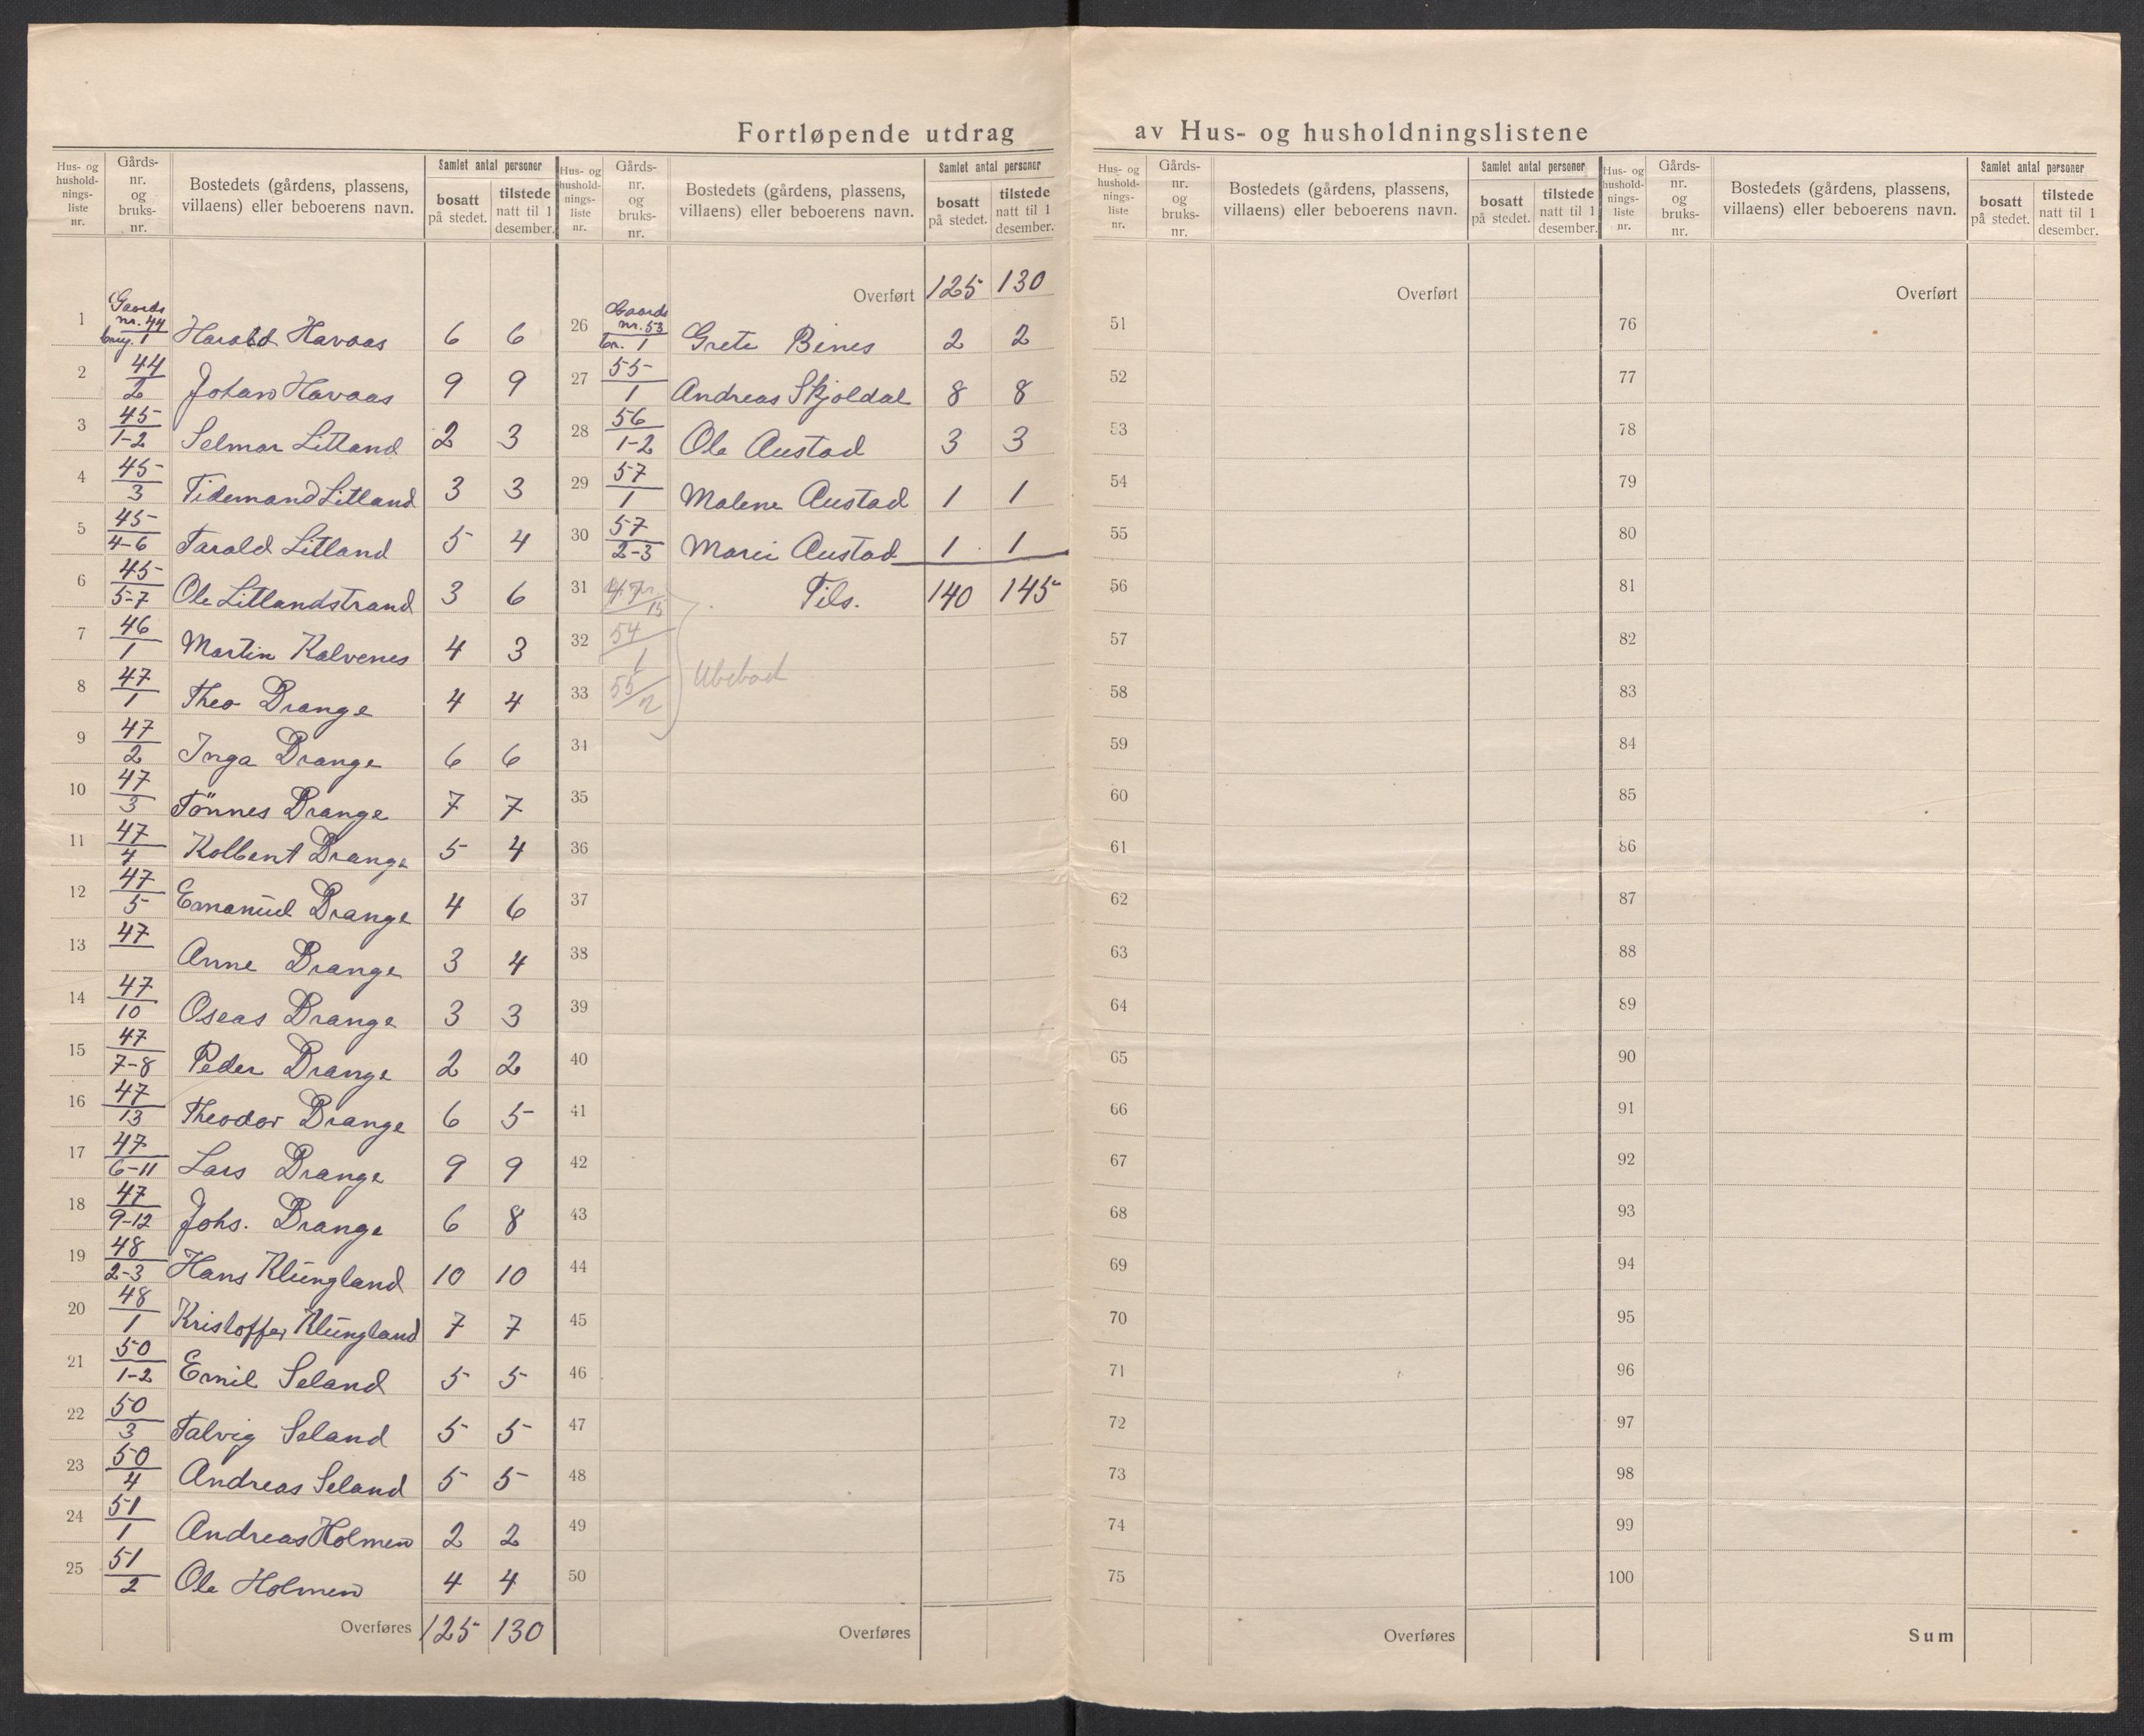 Fortløpende utdrag av Hus- og husholdningslistene
Hus- og husholdnings-liste nr. | Gårds-nr. og bruks-nr. | Bostedets (gårdens, plassens, villaens) eller beboerens navn. | Samlet antal personer | bosatt på stedet. | tilstede natt til 1 desember.
1 Gaards nr. 44 brug. 1 Harald Havaas 6 6
2 44/2 Johan Havaas 9 9
3 45/1-2 Selmar Litland 2 3
4 45/3 Tidemand Litland 3 3
5 45/4-6 Tarald Litland 5 4
6 45/5-7 Ole Litlandstrand 3 6
7 46/1 Martin Kalvenes 4 3
8 47/1 Theo Drange 4 4
9 47/2 Inga Drange 6 6
10 47/3 Tönnes Drange 7 7
11 47/4 Kolbent Drange 5 4
12 47/5 Emanuel Drange 4 6
13 47 Anne Drange 3 4
14 47/10 Oseas Drange 3 3
15 47/7-8 Peder Drange 2 2
16 47/13 Theodor Drange 6 5
17 47/6-11 Lars Drange 9 9
18 47/9-12 Johs. Drange 6 8
19 48/2-3 Hans Klungland 10 10
20 48/1 Kristoffer Klungland 7 7
21 50/1-2 Emil Seland 5 5
22 50/3 Talvig Seland 5 5
23 50/4 Andreas Seland 5 5
24 51/1 Andreas Holmen 2 2
25 51/2 Ole Holmen 4 4
Overføres 125 130
Hus- og husholdnings-liste nr. | Gårds-nr. og bruks-nr. | Bostedets (gårdens, plassens, villaens) eller beboerens navn. | Samlet antal personer | bosatt på stedet. | tilstede natt til 1 desember.
Overført 125 130
26 Gaards nr. 53 br. 1 Grete Benes 2 2
27 55/1 Andreas Skjoldal 8 8
28 56/1-2 Ole Austad 3 3
29 57/1 Malene Austad 1 1
30 57/2-3 Marie Austad 1 1
31 47/15 Tils. 140 145
32 54/1
33 55/2 Ubebod
34
35
36
37
38
39
40
41
42
43
44
45
46
47
48
49
50
Overføres
Hus- og husholdnings-liste nr. | Gårds-nr. og bruks-nr. | Bostedets (gårdens, plassens, villaens) eller beboerens navn. | Samlet antal personer | bosatt på stedet. | tilstede natt til 1 desember.
Overført
51
52
53
54
55
56
57
58
59
60
61
62
63
64
65
66
67
68
69
70
71
72
73
74
75
Overføres
Hus- og husholdnings-liste nr. | Gårds-nr. og bruks-nr. | Bostedets (gårdens, plassens, villaens) eller beboerens navn. | Samlet antal personer | bosatt på stedet. | tilstede natt til 1 desember.
Overført
76
77
78
79
80
81
82
83
84
85
86
87
88
89
90
91
92
93
94
95
96
97
98
99
100
Sum